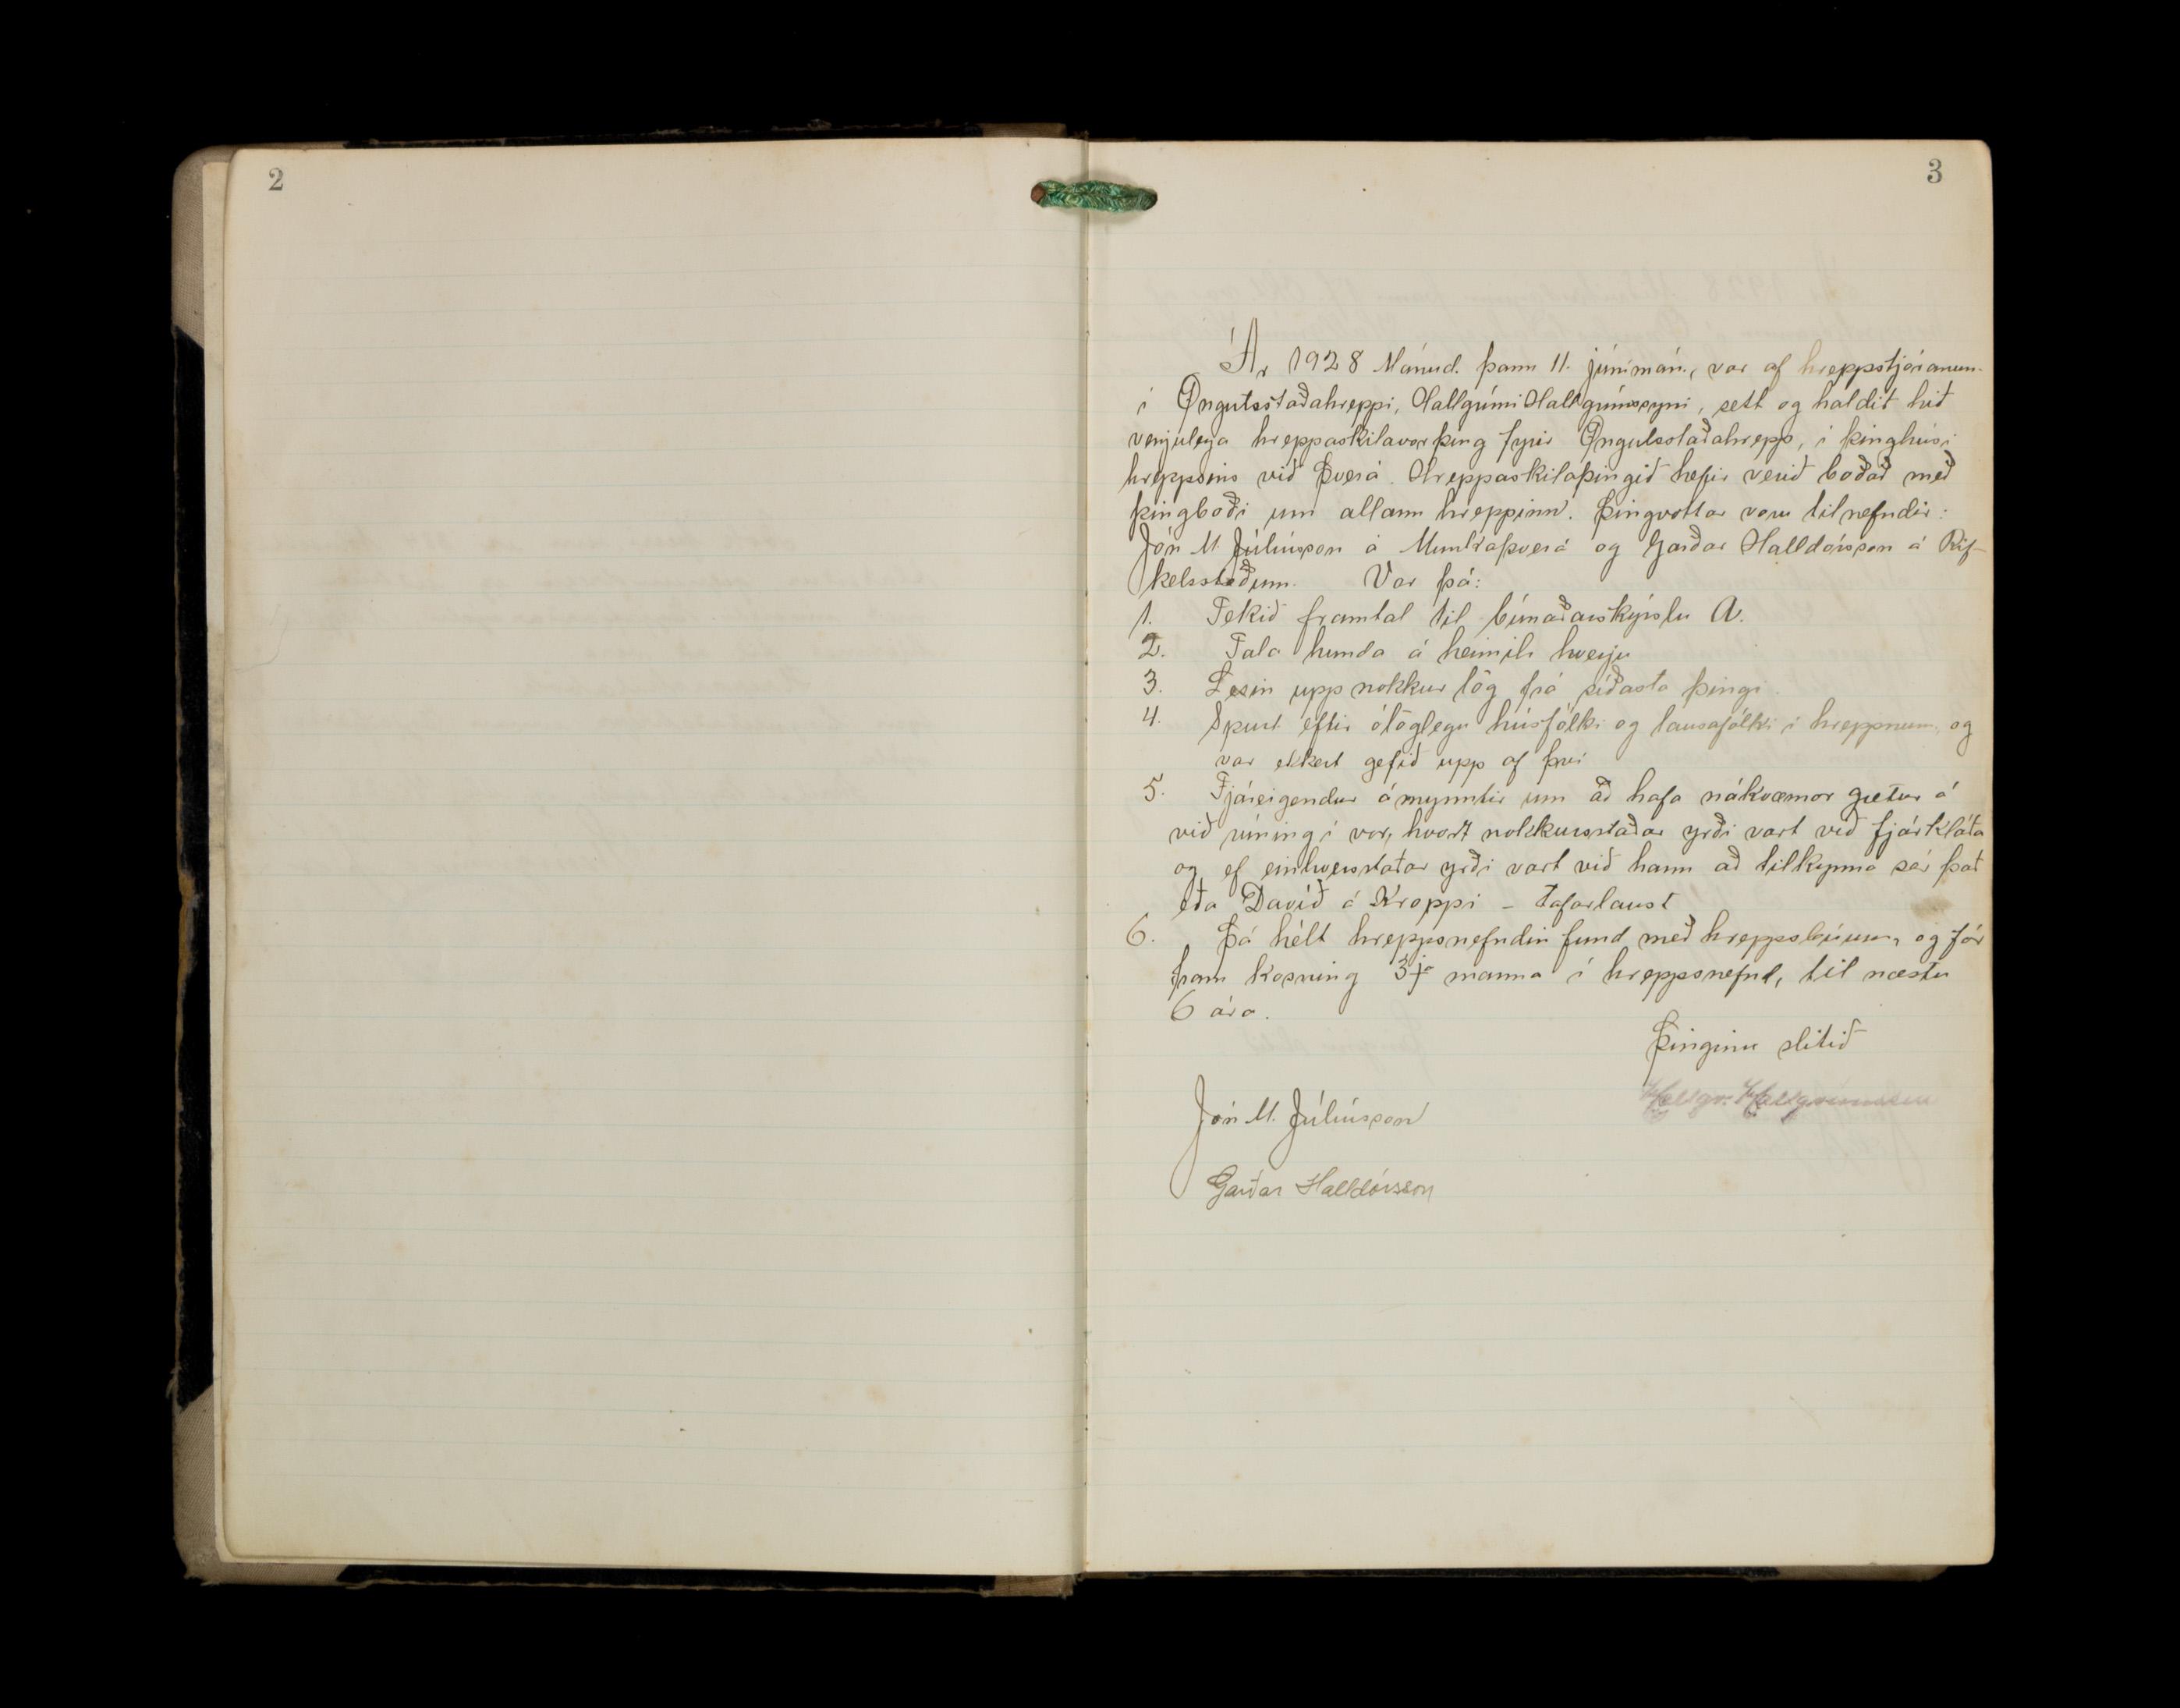 2
3
Ár 1928 Mánud. þann 11. júnímán., var af hreppstjóranum
í Öngulsstaðahreppi, Hallgrími Hallgrímssyni, sett og haldið hið
venjulega hreppaskilavorþing fyrir Öngulsstaðahrepp, í þinghúsi
hreppsins við Þverá. Hreppaskilaþingið hefir verið boðað með
þingboði um allann hreppinn. Þingvottar voru tilnefndir:
Jón M. Júlíusson á Munkaþverá og Garðar Halldórsson á Rif-
kelsstöðum. Var þá:
1. Tekið framtal til búnaðarskýrslu A.
2. Tala hunda á heimili hverju
3. Lesin upp nokkur lög frá síðasta þingi.
4. Spurt eftir ólöglegu húsfólki og lausafólki í hreppnum, og
var ekkert gefið upp af því
5. Fjáreigendur ámynntir um að hafa nákvæmar gætur á
við rúning í vor, hvort nokkursstaðar yrði vart við fjárkláða
og ef einhversstaðar yrði vart við hann að tilkynna sér það
eða Davíð á Kroppi - tafarlaust
6. Þá hélt hreppsnefndin fund með hreppsbúum, og fór
fram kosning 3ja manna í hreppsnefnd, til næstu
6 ára.
Þinginu slitið
Hallgr. Hallgrímsson
Jón M. Júlíusson
Garðar Halldórsson